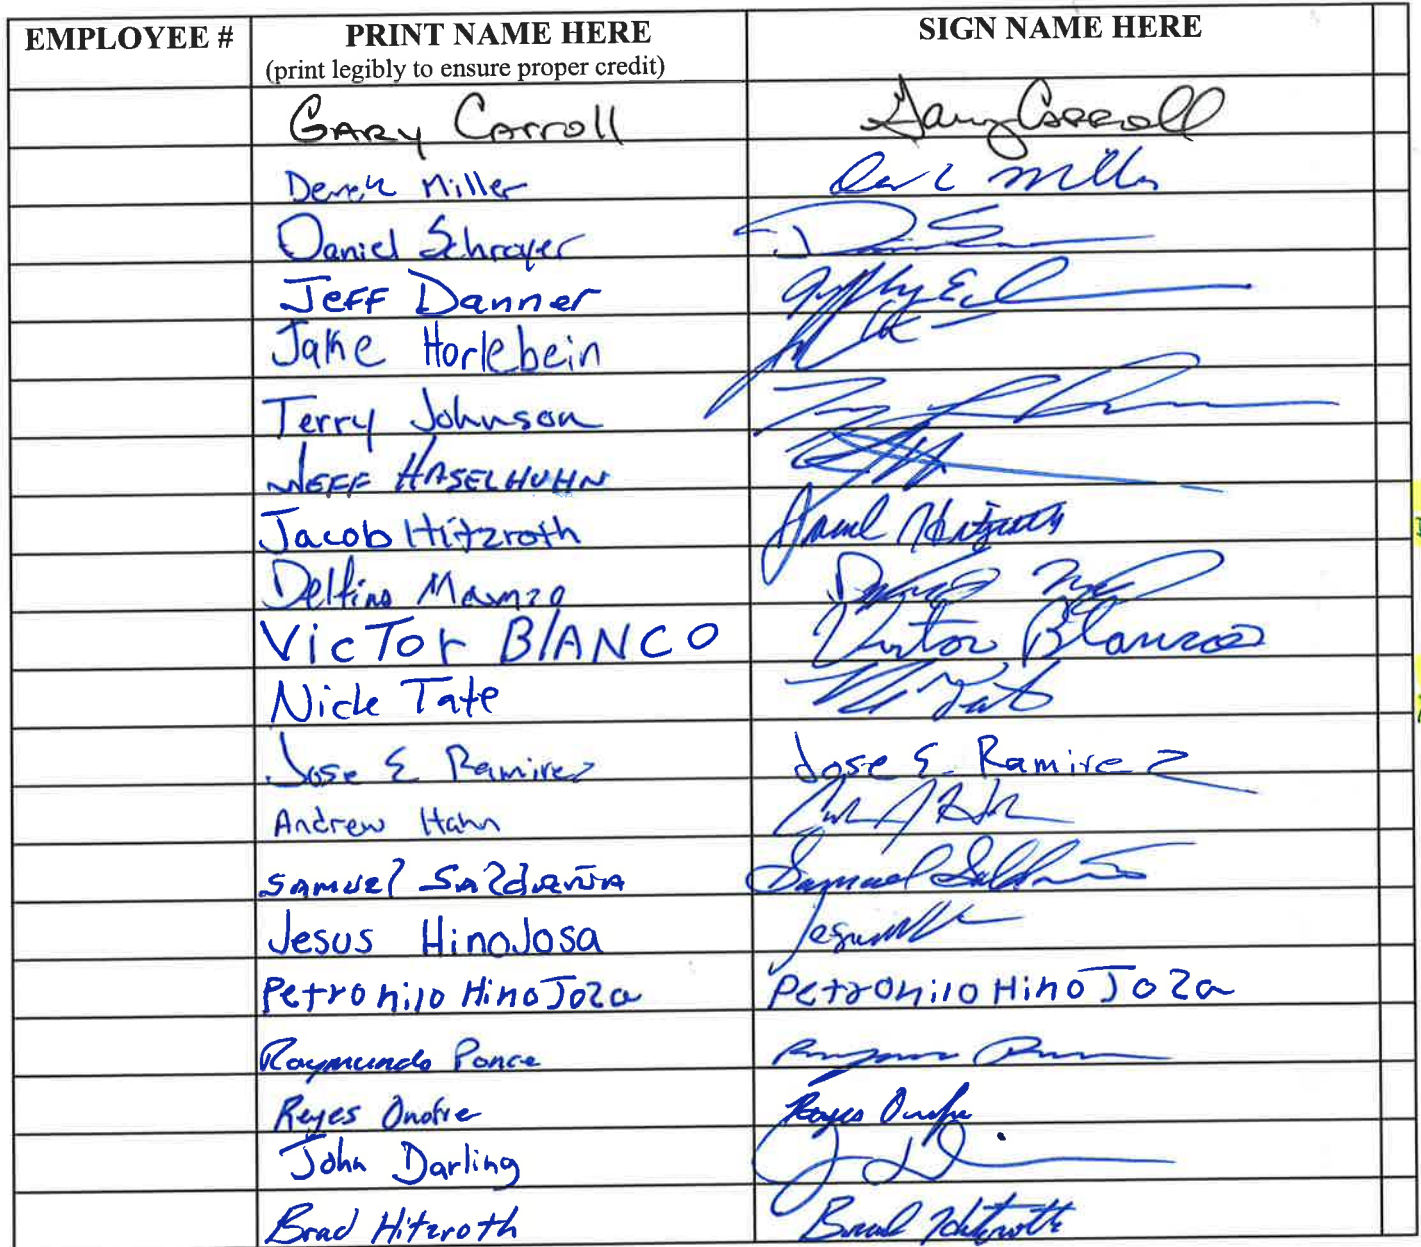 EMPLOYEE # PRINT NAME HERE SIGN NAME HERE
(print legibly to ensure proper credit)
GARY Carroll Gary Carroll
Derek Miller Miller
Daniel Schrayer
Jeff Danner
Jake Horlebein
Terry Johnson
JEFF HASELHUHN
Jacob Hitzroth Jacob Hitzroth
Delfino
VicTor BlANCO Victor Blanco
Nick Tate Tate
Jose E Ramirez Jose E. Ramirez
Andrew Hahn
SAMUEl SAldAÑA Samuel
Jesus HinoJosa Jesus
Petronilo HinoJoza Petronilo HinoJoza
Raymundo Ponce
Reyes Onofre Reyes Onofre
John Darling
Brad Hitzroth Brad Hitzroth